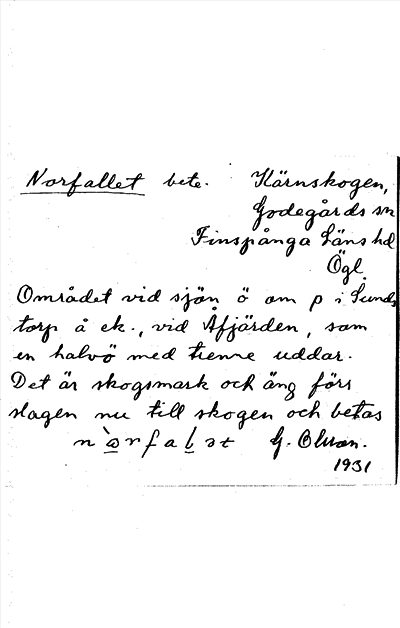 Norfallet bete. Kärnskogen,
Godegårds sn
Finspånga Läns hd
Ögl.
Området vid sjön ö om p i Sunds
torp å ek., vid Åfjärden, som
en halvö med trenne uddar.
Det är skogsmark och äng förs
slagen nu till skogen och betas
G. Olsson.
1931